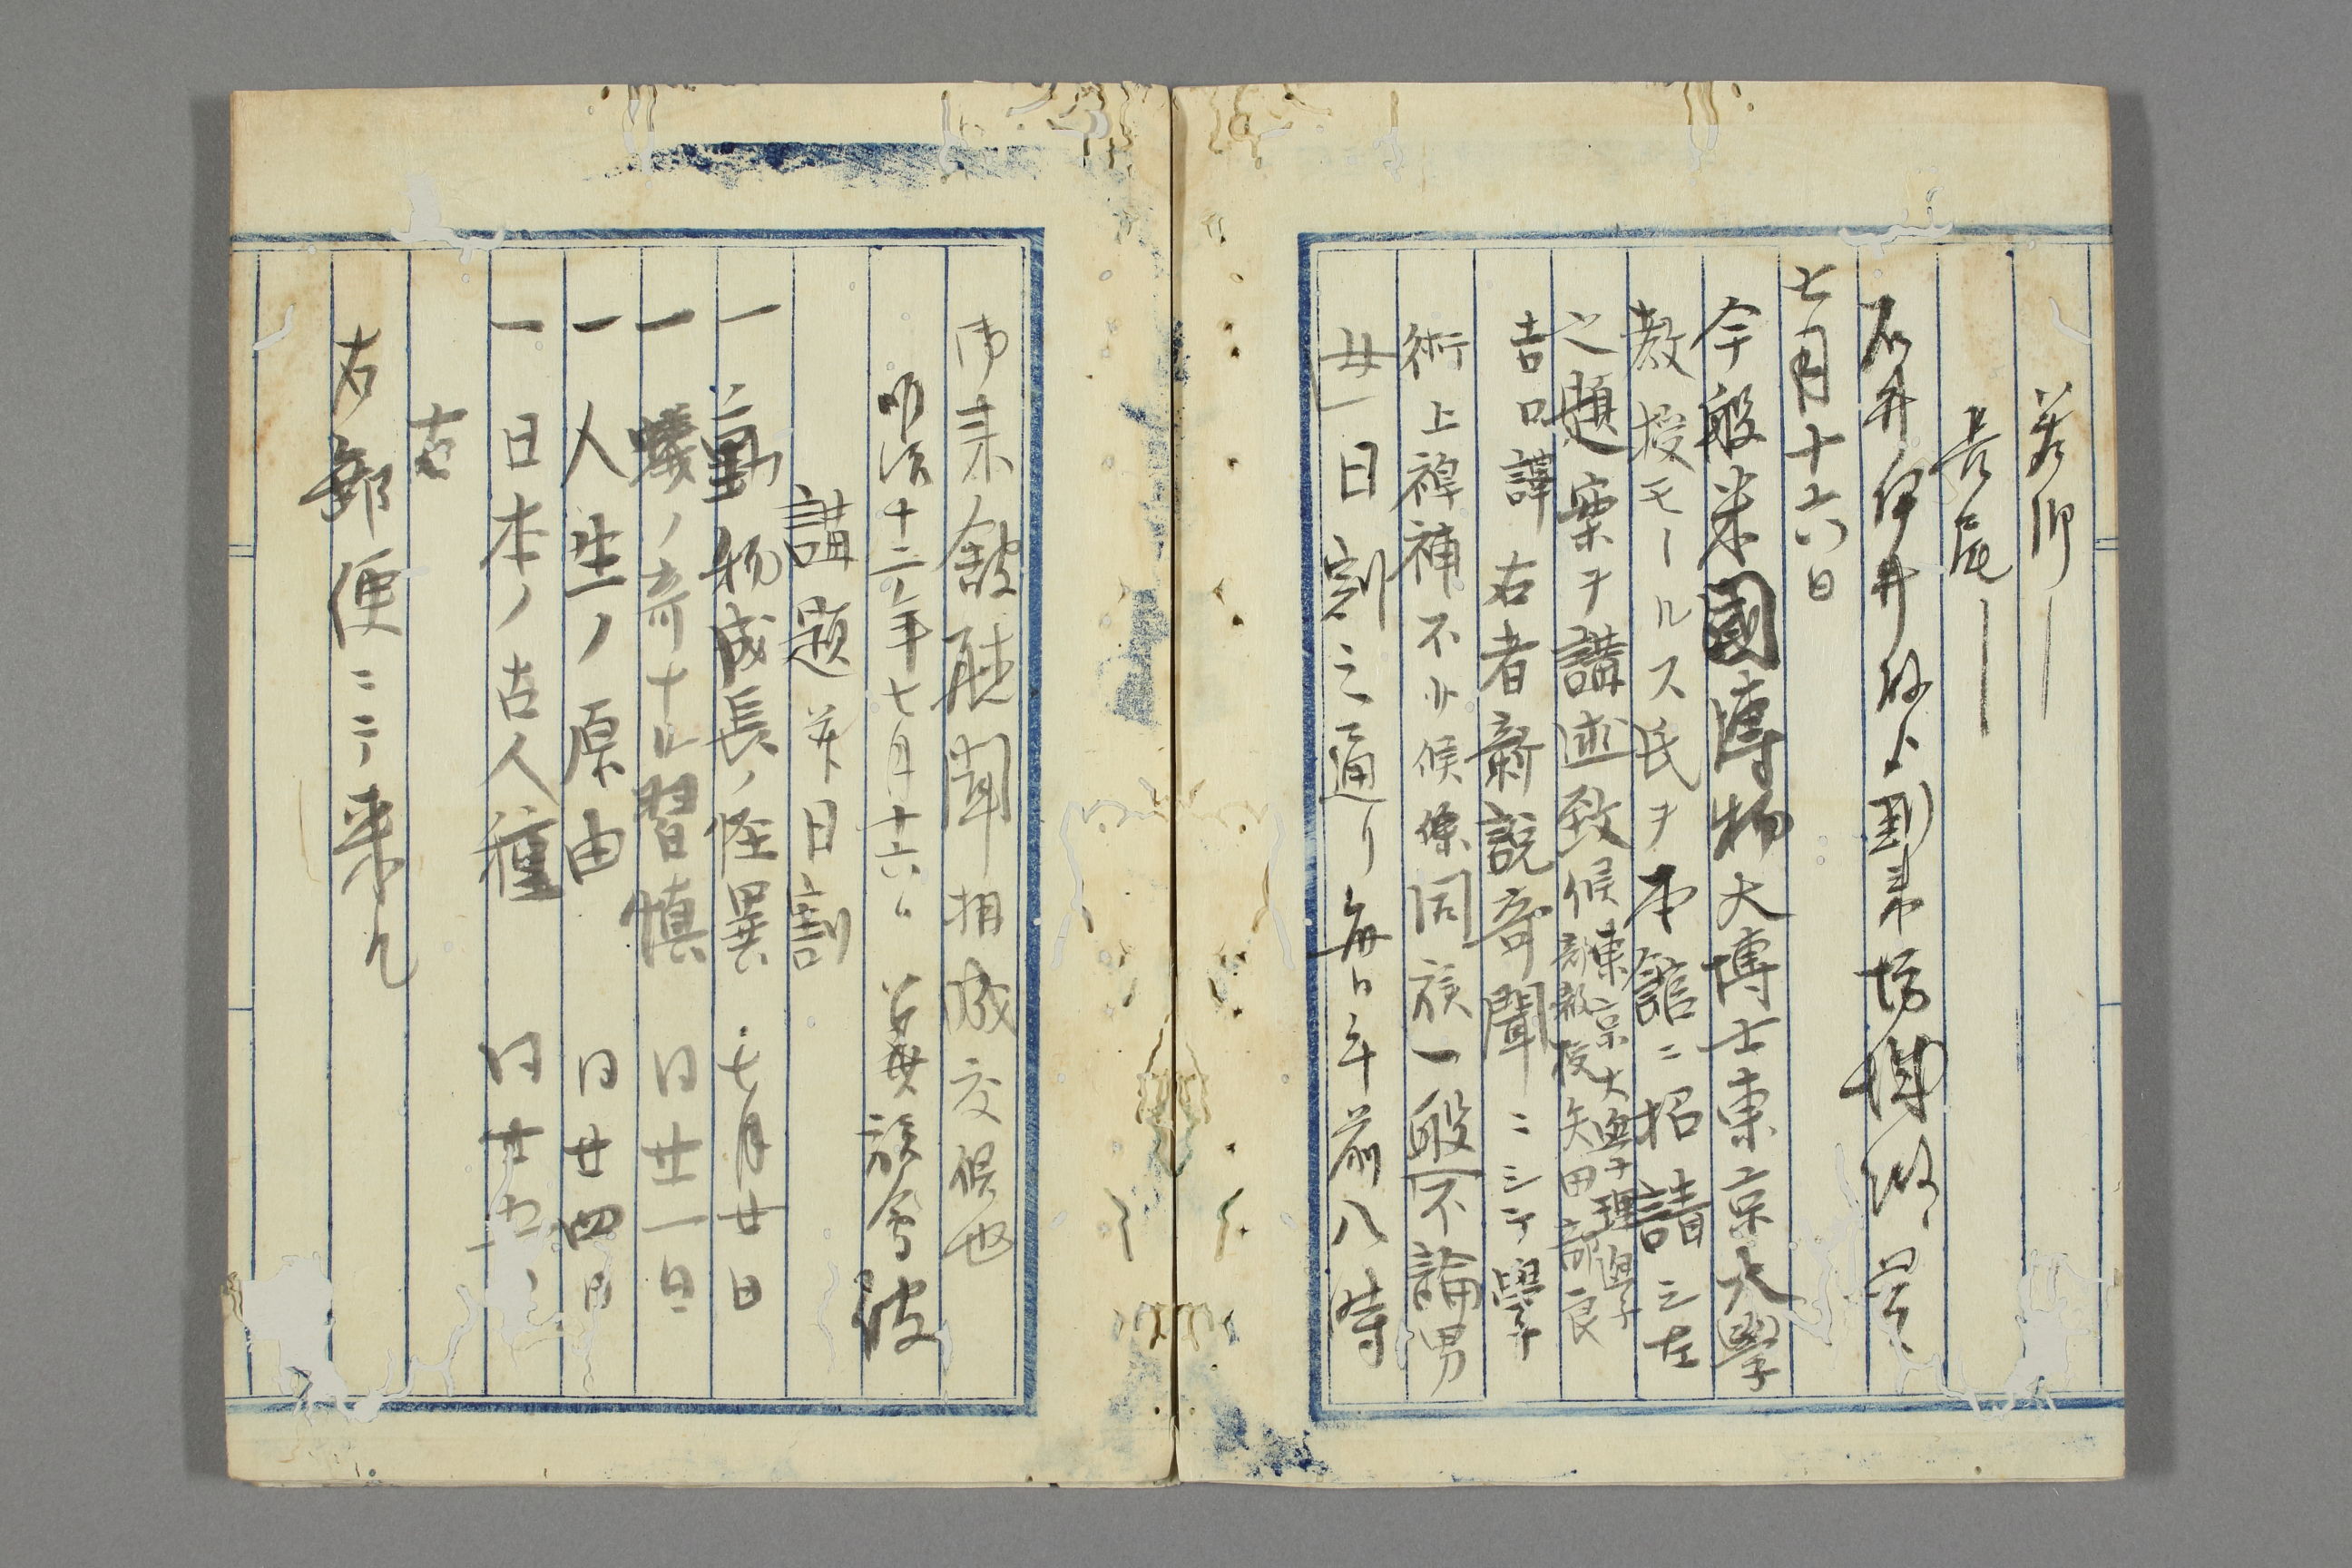 七月十六日
今般米國博物大博士東京大學
教授モールス氏ヲ本館ニ招請シ左
之題案ヲ講述致候東京大學理學
部教授矢田部良
吉口譯右者新説奇聞ニシテ學
術上裨補不少候條同族一般不論男
女日割之通リ毎日午前八時
ゟ来館聴聞相成度候也
明治十二年七月十六日 華族會館
講題并日割
一動物成長ノ怪異 七月廿日
一蟻ノ奇ナル習慎 同廿一日
一人生ノ原由 同廿四日
一日本ノ古人種 同廿五日
右
右郵便ニテ来ル